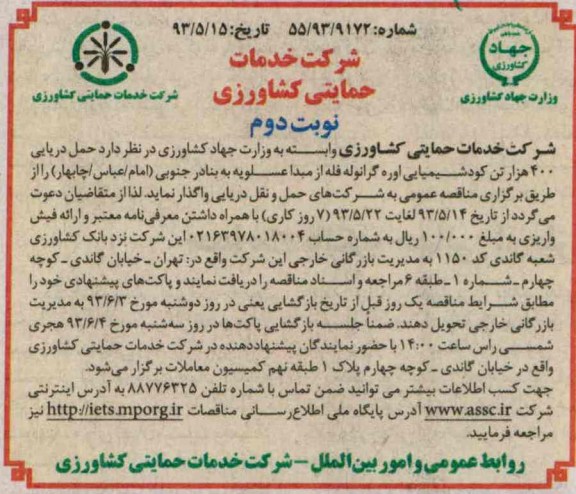 شماره: ۵۵/۹۳/۹۱۷۲ تاریخ: ۹۳/۵/۱۵
جهاد
کشاورزی
وزارت جهاد کشاورزی
شرکت خدمات حمایتی کشاورزی
شرکت خدمات
حمایتی کشاورزی
نوبت دوم
شرکت خدمات حمایتی کشاورزی وابسته به وزارت جهاد کشاورزی در نظر دارد حمل دریایی
۴۰۰ هزار تن کود شیمیایی اوره گرانوله فله از مبدا عسلویه به بنادر جنوبی (امام/عباس/چابهار) را از
طریق برگزاری مناقصه عمومی به شرکت‌های حمل و نقل دریایی واگذار نماید. لذا از متقاضیان دعوت
می‌گردد از تاریخ ۹۳/۵/۱۴ لغایت ۹۳/۵/۲۲ (۷ روز کاری) با همراه داشتن معرفی‌نامه معتبر و ارائه فیش
واریزی به مبلغ ۱۰۰/۰۰۰ ریال به شماره حساب ۰۲۱۶۳۹۷۸۰۱۸۰۰۴ این شرکت نزد بانک کشاورزی
شعبه گاندی کد ۱۱۵۰ به مدیریت بازرگانی خارجی این شرکت واقع در: تهران ـ خیابان گاندی ـ کوچه
چهارم ـ شماره ۱ ـ طبقه ۶ مراجعه و اسناد مناقصه را دریافت نمایند و پاکت‌های پیشنهادی خود را
مطابق شرایط مناقصه یک روز قبل از تاریخ بازگشایی یعنی در روز دوشنبه مورخ ۹۳/۶/۳ به مدیریت
بازرگانی خارجی تحویل دهند. ضمناً جلسه بازگشایی پاکت‌ها در روز سه‌شنبه مورخ ۹۳/۶/۴ هجری
شمسی راس ساعت ۱۴:۰۰ با حضور نمایندگان پیشنهاددهنده در شرکت خدمات حمایتی کشاورزی
واقع در خیابان گاندی ـ کوچه چهارم پلاک ۱ طبقه نهم کمیسیون معاملات برگزار می‌شود.
جهت کسب اطلاعات بیشتر می توانید ضمن تماس با شماره تلفن ۸۸۷۷۶۳۲۵ به آدرس اینترنتی
شرکت www.assc.ir آدرس پایگاه ملی اطلاع‌رسانی مناقصات http://iets.mporg.ir نیز
مراجعه فرمایید.
روابط عمومی و امور بین‌الملل – شرکت خدمات حمایتی کشاورزی